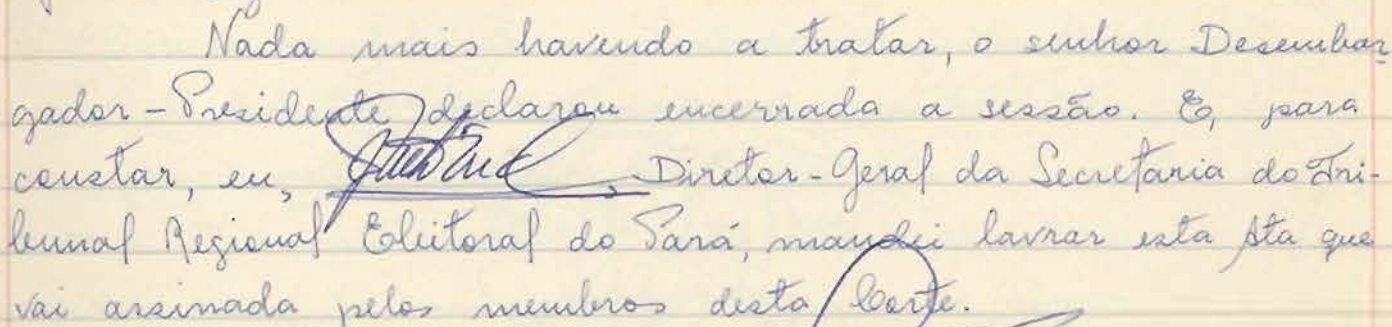 Nada mais havendo a tratar, o senhor Desembar
gador-Presidente declarou encerrada a sessão. E, para
constar, eu, , Diretor-Geral da Secretaria do Tri-
bunal Regional Eleitoral do Pará, mandei lavrar esta Ata que
vai assinada pelos membros desta Corte.